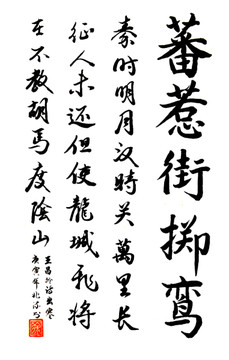 蕃惹街掷鸾
秦时明月汉時关萬里长
征人未还但使龍城飛将
在不教胡马度陰山
王昌龄诗出塞
庚寅年